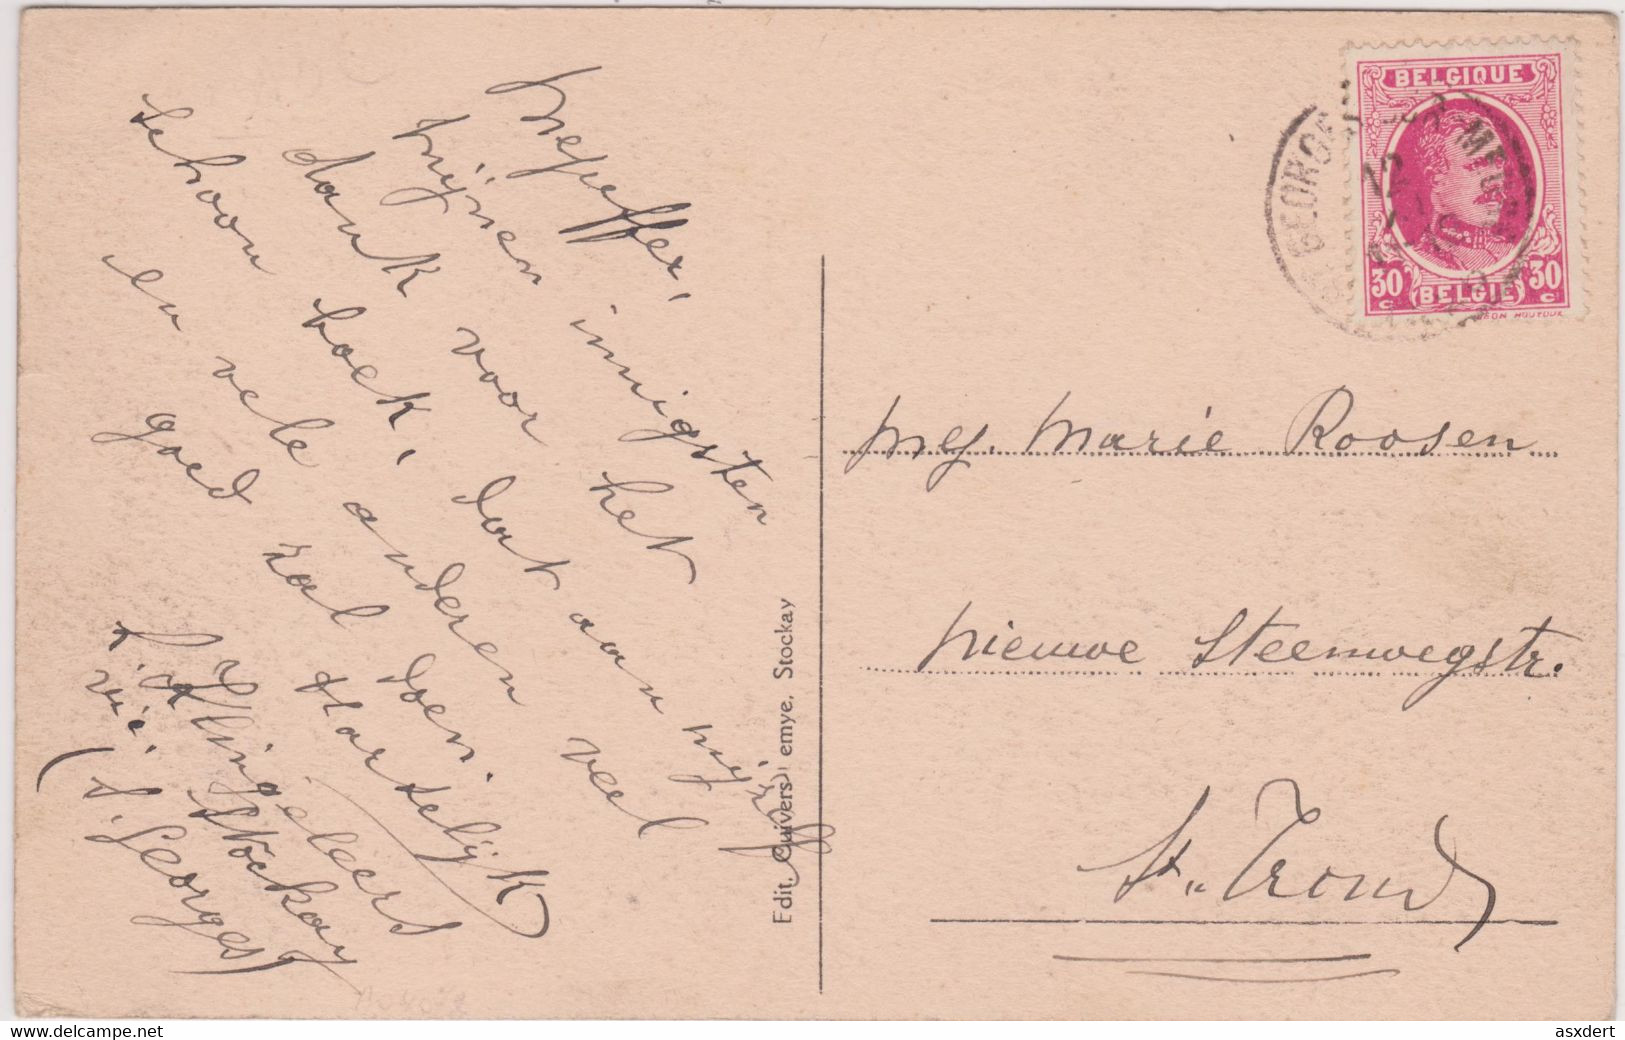 Mejuffer,
Mijnen innigsten
dank voor het
schoon boek, dat aan mij
en vele anderen veel
goed zal doen.
Hartelijk
Klingeleers
Stockay
(St Georges)
Edit. Cuivers, emye. Stockay
BELGIQUE
30 c BELGIË 30 c
GEORGES
Mej. Marie Roosen
Nieuwe Steenwegstr.
St. Trond
www.delcampe.net
asxdert